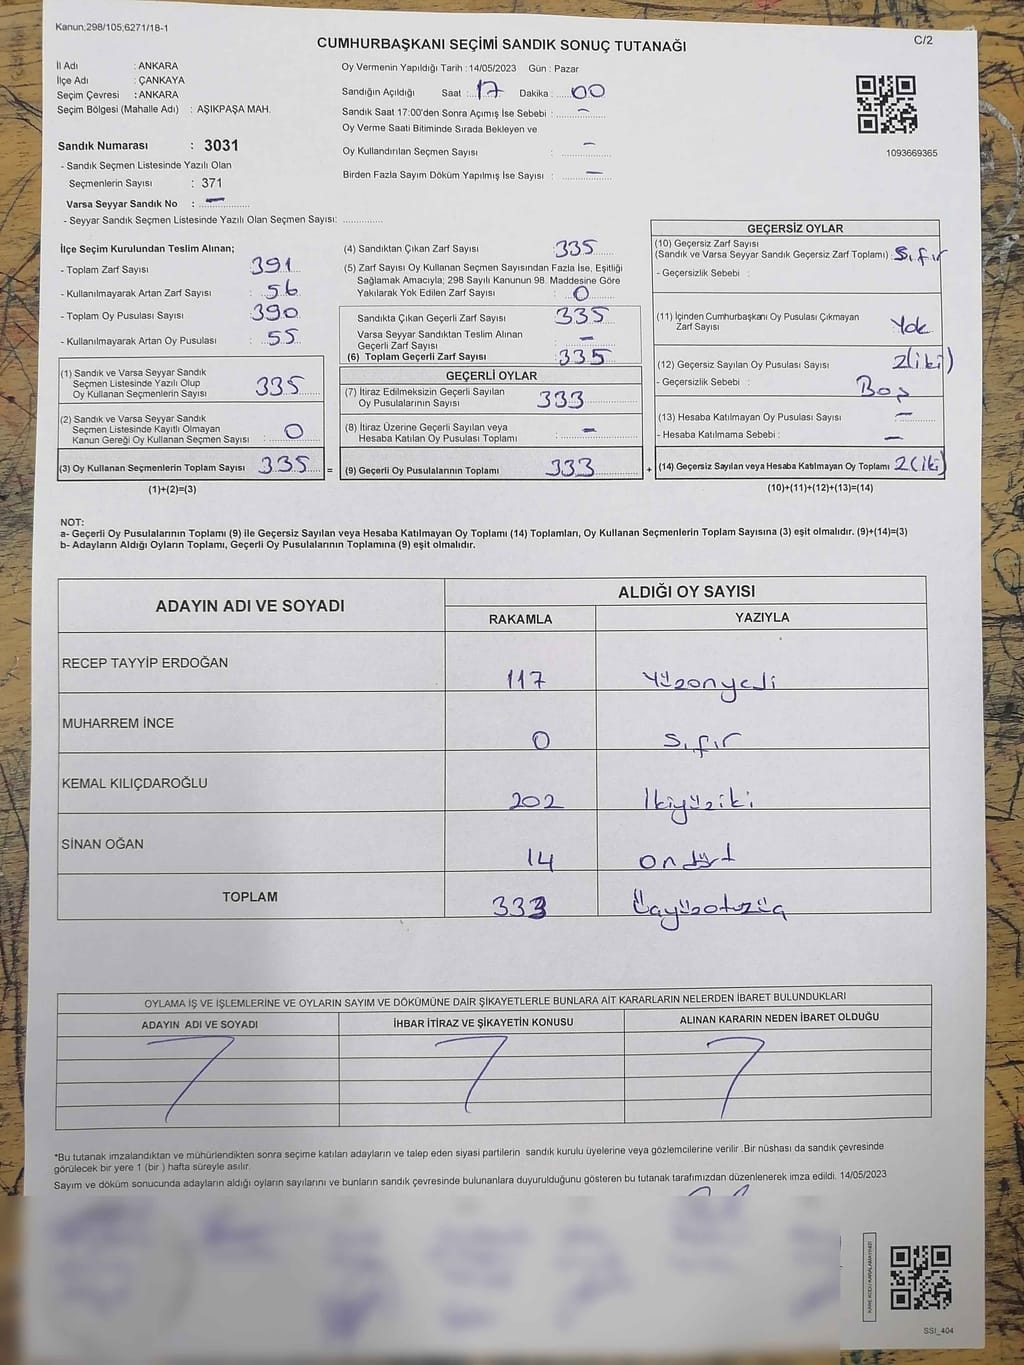 Kanun,298/105,6271/18-1
C/2
CUMHURBAŞKANI SEÇİMİ SANDIK SONUÇ TUTANAĞI
İl Adı : ANKARA
İlçe Adı : ÇANKAYA
Seçim Çevresi : ANKARA
Seçim Bölgesi (Mahalle Adı) : AŞIKPAŞA MAH.
Sandık Numarası : 3031
- Sandık Seçmen Listesinde Yazılı Olan
Seçmenlerin Sayısı : 371
Varsa Seyyar Sandık No : –
- Seyyar Sandık Seçmen Listesinde Yazılı Olan Seçmen Sayısı: ..............
Oy Vermenin Yapıldığı Tarih : 14/05/2023 Gün : Pazar
Sandığın Açıldığı Saat : 17 Dakika : 00
Sandık Saat 17:00'den Sonra Açımış İse Sebebi : –
Oy Verme Saati Bitiminde Sırada Bekleyen ve
Oy Kullandırılan Seçmen Sayısı : –
Birden Fazla Sayım Döküm Yapılmış İse Sayısı : –
1093669365
İlçe Seçim Kurulundan Teslim Alınan;
- Toplam Zarf Sayısı : 391
- Kullanılmayarak Artan Zarf Sayısı : 56
- Toplam Oy Pusulası Sayısı : 390
- Kullanılmayarak Artan Oy Pusulası : 55
(1) Sandık ve Varsa Seyyar Sandık
Seçmen Listesinde Yazılı Olup
Oy Kullanan Seçmenlerin Sayısı : 335
(2) Sandık ve Varsa Seyyar Sandık
Seçmen Listesinde Kayıtlı Olmayan
Kanun Gereği Oy Kullanan Seçmen Sayısı : 0
(3) Oy Kullanan Seçmenlerin Toplam Sayısı : 335 =
(1)+(2)=(3)
(4) Sandıktan Çıkan Zarf Sayısı : 335
(5) Zarf Sayısı Oy Kullanan Seçmen Sayısından Fazla İse, Eşitliği
Sağlamak Amacıyla; 298 Sayılı Kanunun 98. Maddesine Göre
Yakılarak Yok Edilen Zarf Sayısı : 0
Sandıkta Çıkan Geçerli Zarf Sayısı : 335
Varsa Seyyar Sandıktan Teslim Alınan
Geçerli Zarf Sayısı : –
(6) Toplam Geçerli Zarf Sayısı : 335
GEÇERLİ OYLAR
(7) İtiraz Edilmeksizin Geçerli Sayılan
Oy Pusulalarının Sayısı : 333
(8) İtiraz Üzerine Geçerli Sayılan veya
Hesaba Katılan Oy Pusulası Toplamı : –
(9) Geçerli Oy Pusulalarının Toplamı : 333 +
GEÇERSİZ OYLAR
(10) Geçersiz Zarf Sayısı
(Sandık ve Varsa Seyyar Sandık Geçersiz Zarf Toplamı) : Sıfır
- Geçersizlik Sebebi :
(11) İçinden Cumhurbaşkanı Oy Pusulası Çıkmayan
Zarf Sayısı : Yok
(12) Geçersiz Sayılan Oy Pusulası Sayısı : 2(iki)
- Geçersizlik Sebebi : Boş
(13) Hesaba Katılmayan Oy Pusulası Sayısı : –
- Hesaba Katılmama Sebebi : –
(14) Geçersiz Sayılan veya Hesaba Katılmayan Oy Toplamı 2(iki)
(10)+(11)+(12)+(13)=(14)
NOT:
a- Geçerli Oy Pusulalarının Toplamı (9) ile Geçersiz Sayılan veya Hesaba Katılmayan Oy Toplamı (14) Toplamları, Oy Kullanan Seçmenlerin Toplam Sayısına (3) eşit olmalıdır. (9)+(14)=(3)
b- Adayların Aldığı Oyların Toplamı, Geçerli Oy Pusulalarının Toplamına (9) eşit olmalıdır.
ADAYIN ADI VE SOYADI
ALDIĞI OY SAYISI
RAKAMLA YAZIYLA
RECEP TAYYİP ERDOĞAN 117 Yüzonyedi
MUHARREM İNCE 0 Sıfır
KEMAL KILIÇDAROĞLU 202 İkiyüziki
SİNAN OĞAN 14 ondört
TOPLAM 333 Üçyüzotuzüç
OYLAMA İŞ VE İŞLEMLERİNE VE OYLARIN SAYIM VE DÖKÜMÜNE DAİR ŞİKAYETLERLE BUNLARA AİT KARARLARIN NELERDEN İBARET BULUNDUKLARI
ADAYIN ADI VE SOYADI İHBAR İTİRAZ VE ŞİKAYETİN KONUSU ALINAN KARARIN NEDEN İBARET OLDUĞU
*Bu tutanak imzalandıktan ve mühürlendikten sonra seçime katılan adayların ve talep eden siyasi partilerin sandık kurulu üyelerine veya gözlemcilerine verilir .Bir nüshası da sandık çevresinde
görülecek bir yere 1 (bir ) hafta süreyle asılır.
Sayım ve döküm sonucunda adayların aldığı oyların sayılarını ve bunların sandık çevresinde bulunanlara duyurulduğunu gösteren bu tutanak tarafımızdan düzenlenerek imza edildi. 14/05/2023
KARE KODU KARALAMAYINIZ!
SSI_404